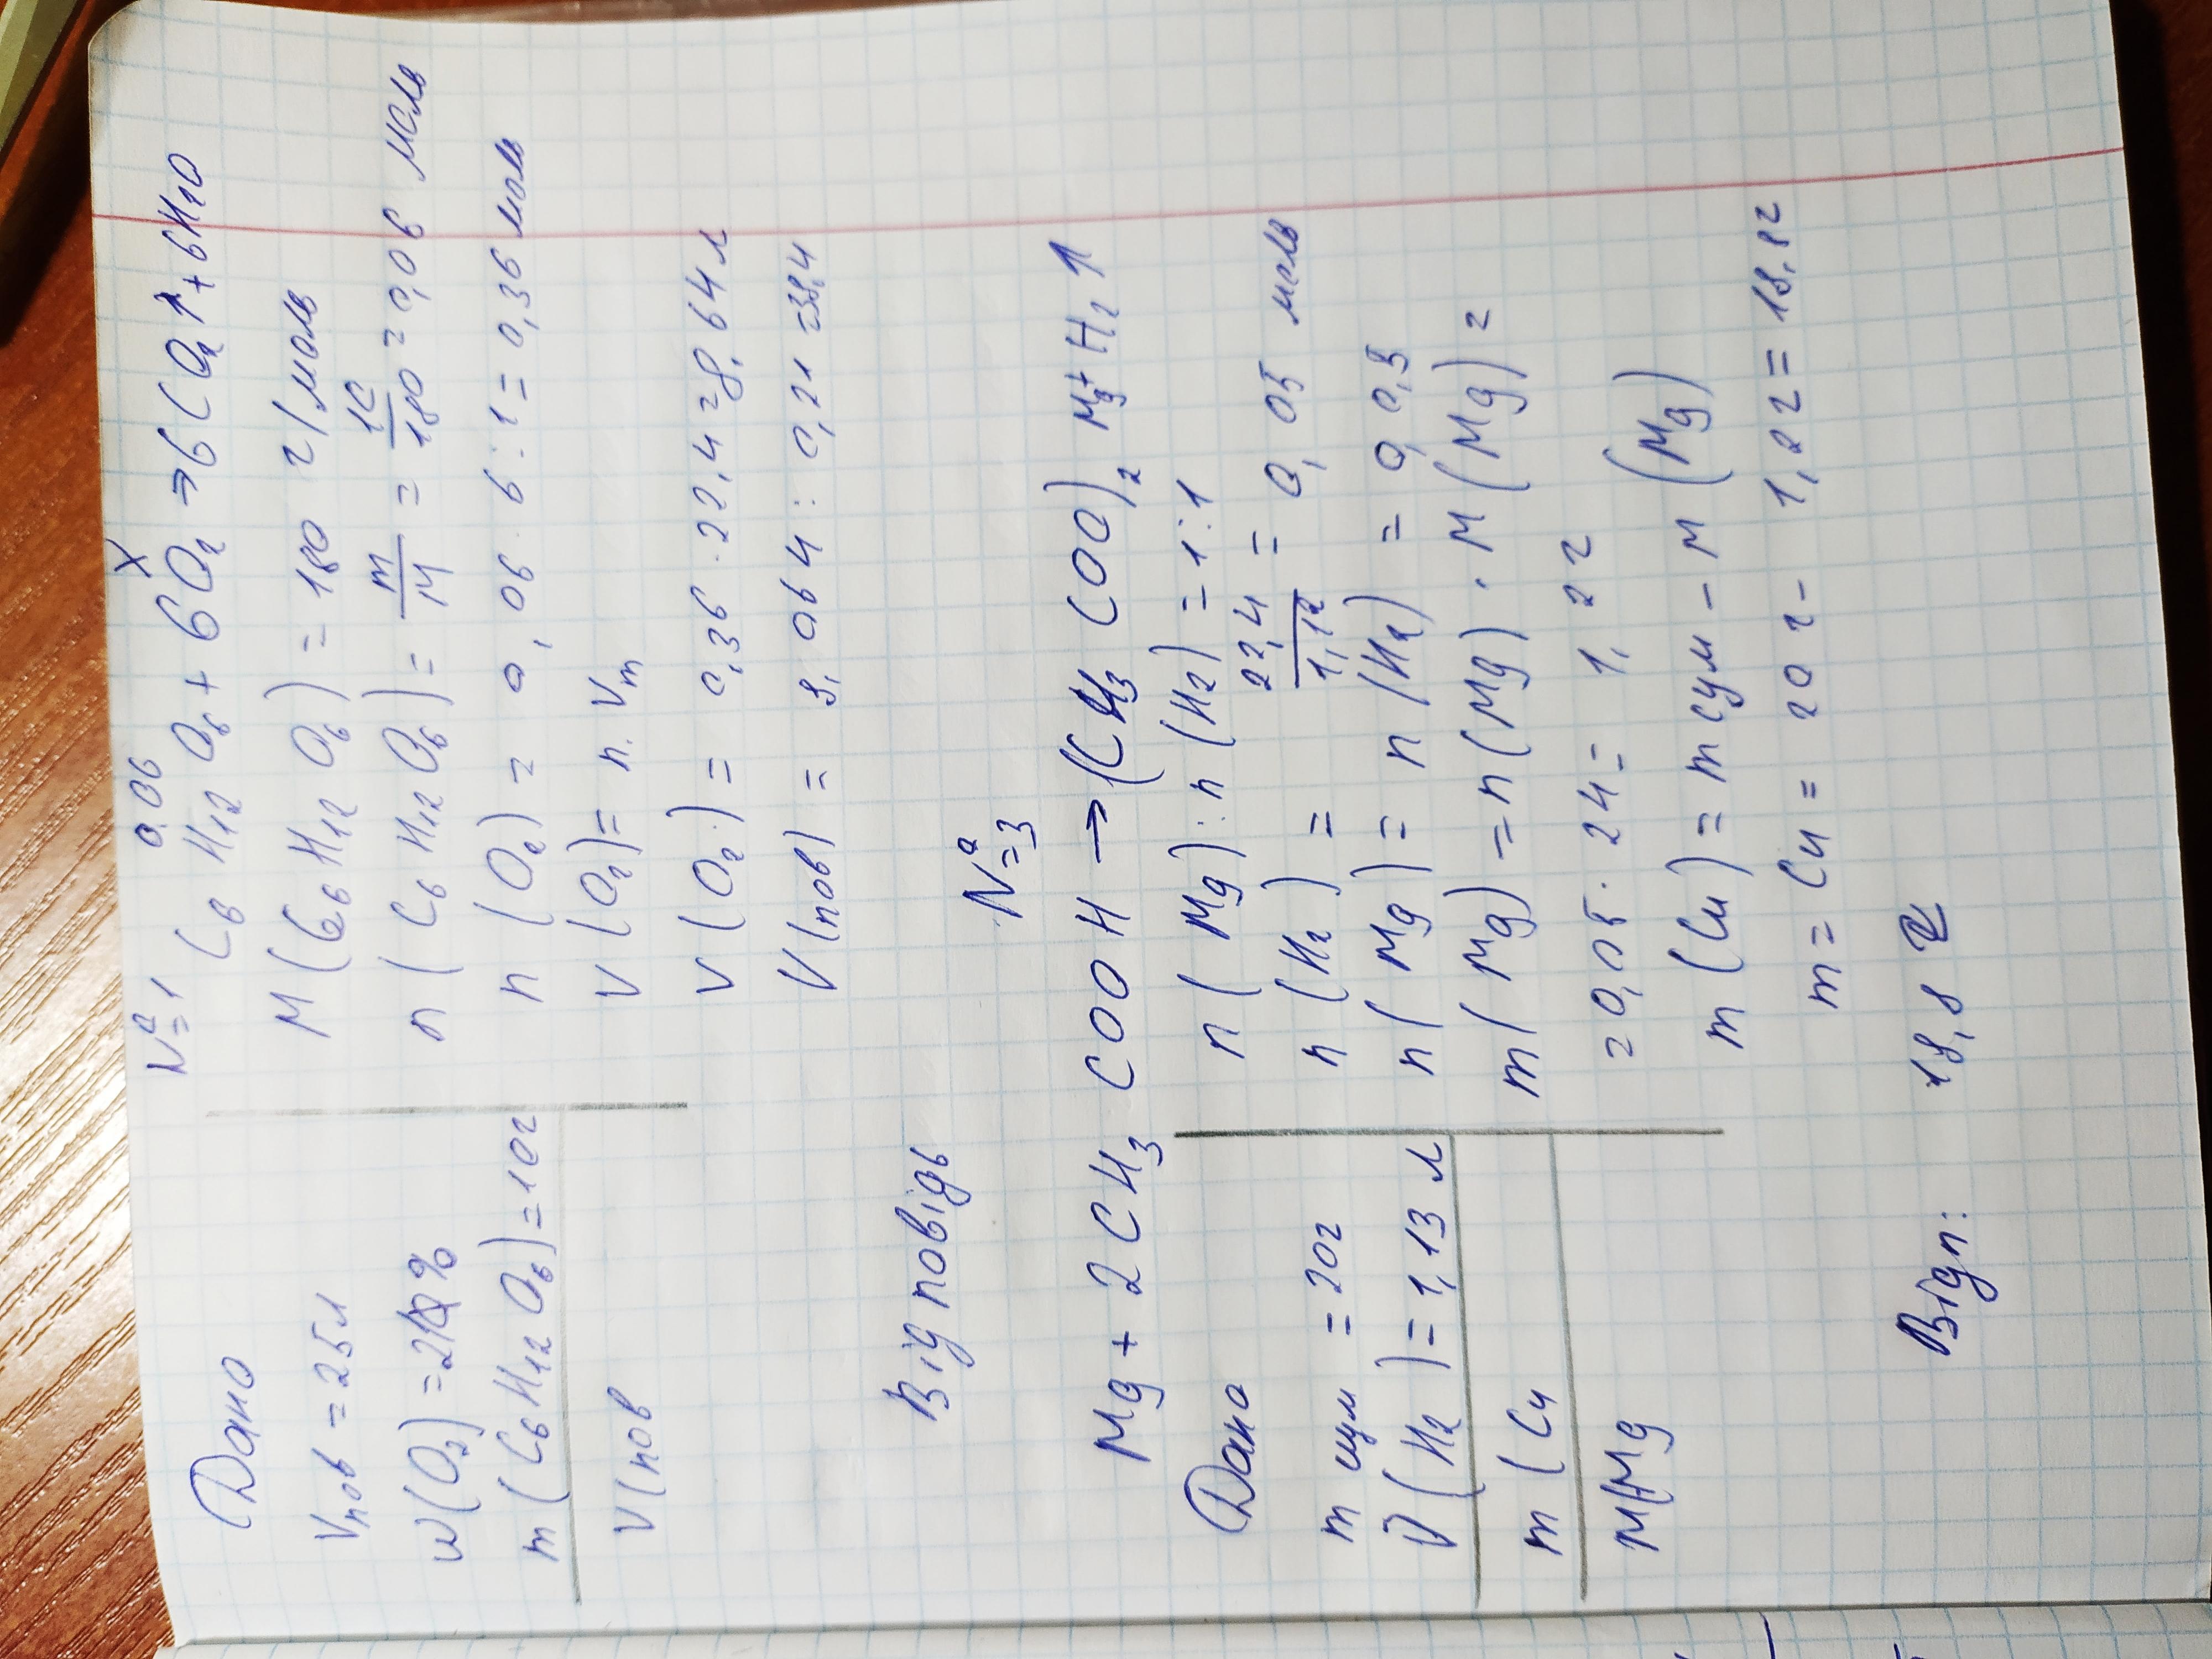 №1 C6H12O6 + 6O2 → 6CO2↑ + 6H2O
0,06 X
Дано
Vпов = 25л
w(O2) = 21%
m(C6H12O6) = 10г
V(пов
M(C6H12O6) = 180 г/моль
n(C6H12O6) = m/M = 10/180 = 0,06 моль
n(O2) = 0,06 · 6 : 1 = 0,36 моль
V(O2) = n · Vm
V(O2) = 0,36 · 22,4 = 8,064 л
V(пов) = 8,064 : 0,21 = 38,4
Відповідь
№3
Mg + 2CH3COOH → (CH3COO)2Mg + H2↑
Дано
m сум = 20г
V(H2) = 1,13 л
m(Cu
M(Mg
n(Mg) : n(H2) = 1:1
n(H2) = 22,4/1,12 = 0,05 моль
n(Mg) = n(H2) = 0,05
m(Mg) = n(Mg) · M(Mg) =
= 0,05 · 24 = 1,2 г
m(Cu) = m сум − M(Mg)
m = Cu = 20г − 1,2г = 18,8г
Відп: 18,8 г